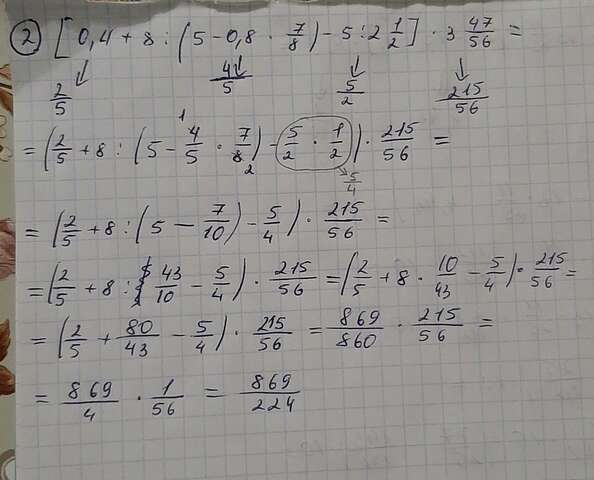 2) [0,4 + 8 : (5 - 0,8 · 7/8) - 5 : 2 1/2] · 3 47/56 =
2/5 4/5 5/2 215/56
= (2/5 + 8 : (5 - 4/5 · 7/8) - 5/2 · 1/2) · 215/56 =
1 2 5/4
= (2/5 + 8 : (5 - 7/10) - 5/4) · 215/56 =
= (2/5 + 8 : 43/10 - 5/4) · 215/56 = (2/5 + 8 · 10/43 - 5/4) · 215/56 =
= (2/5 + 80/43 - 5/4) · 215/56 = 869/860 · 215/56 =
= 869/4 · 1/56 = 869/224